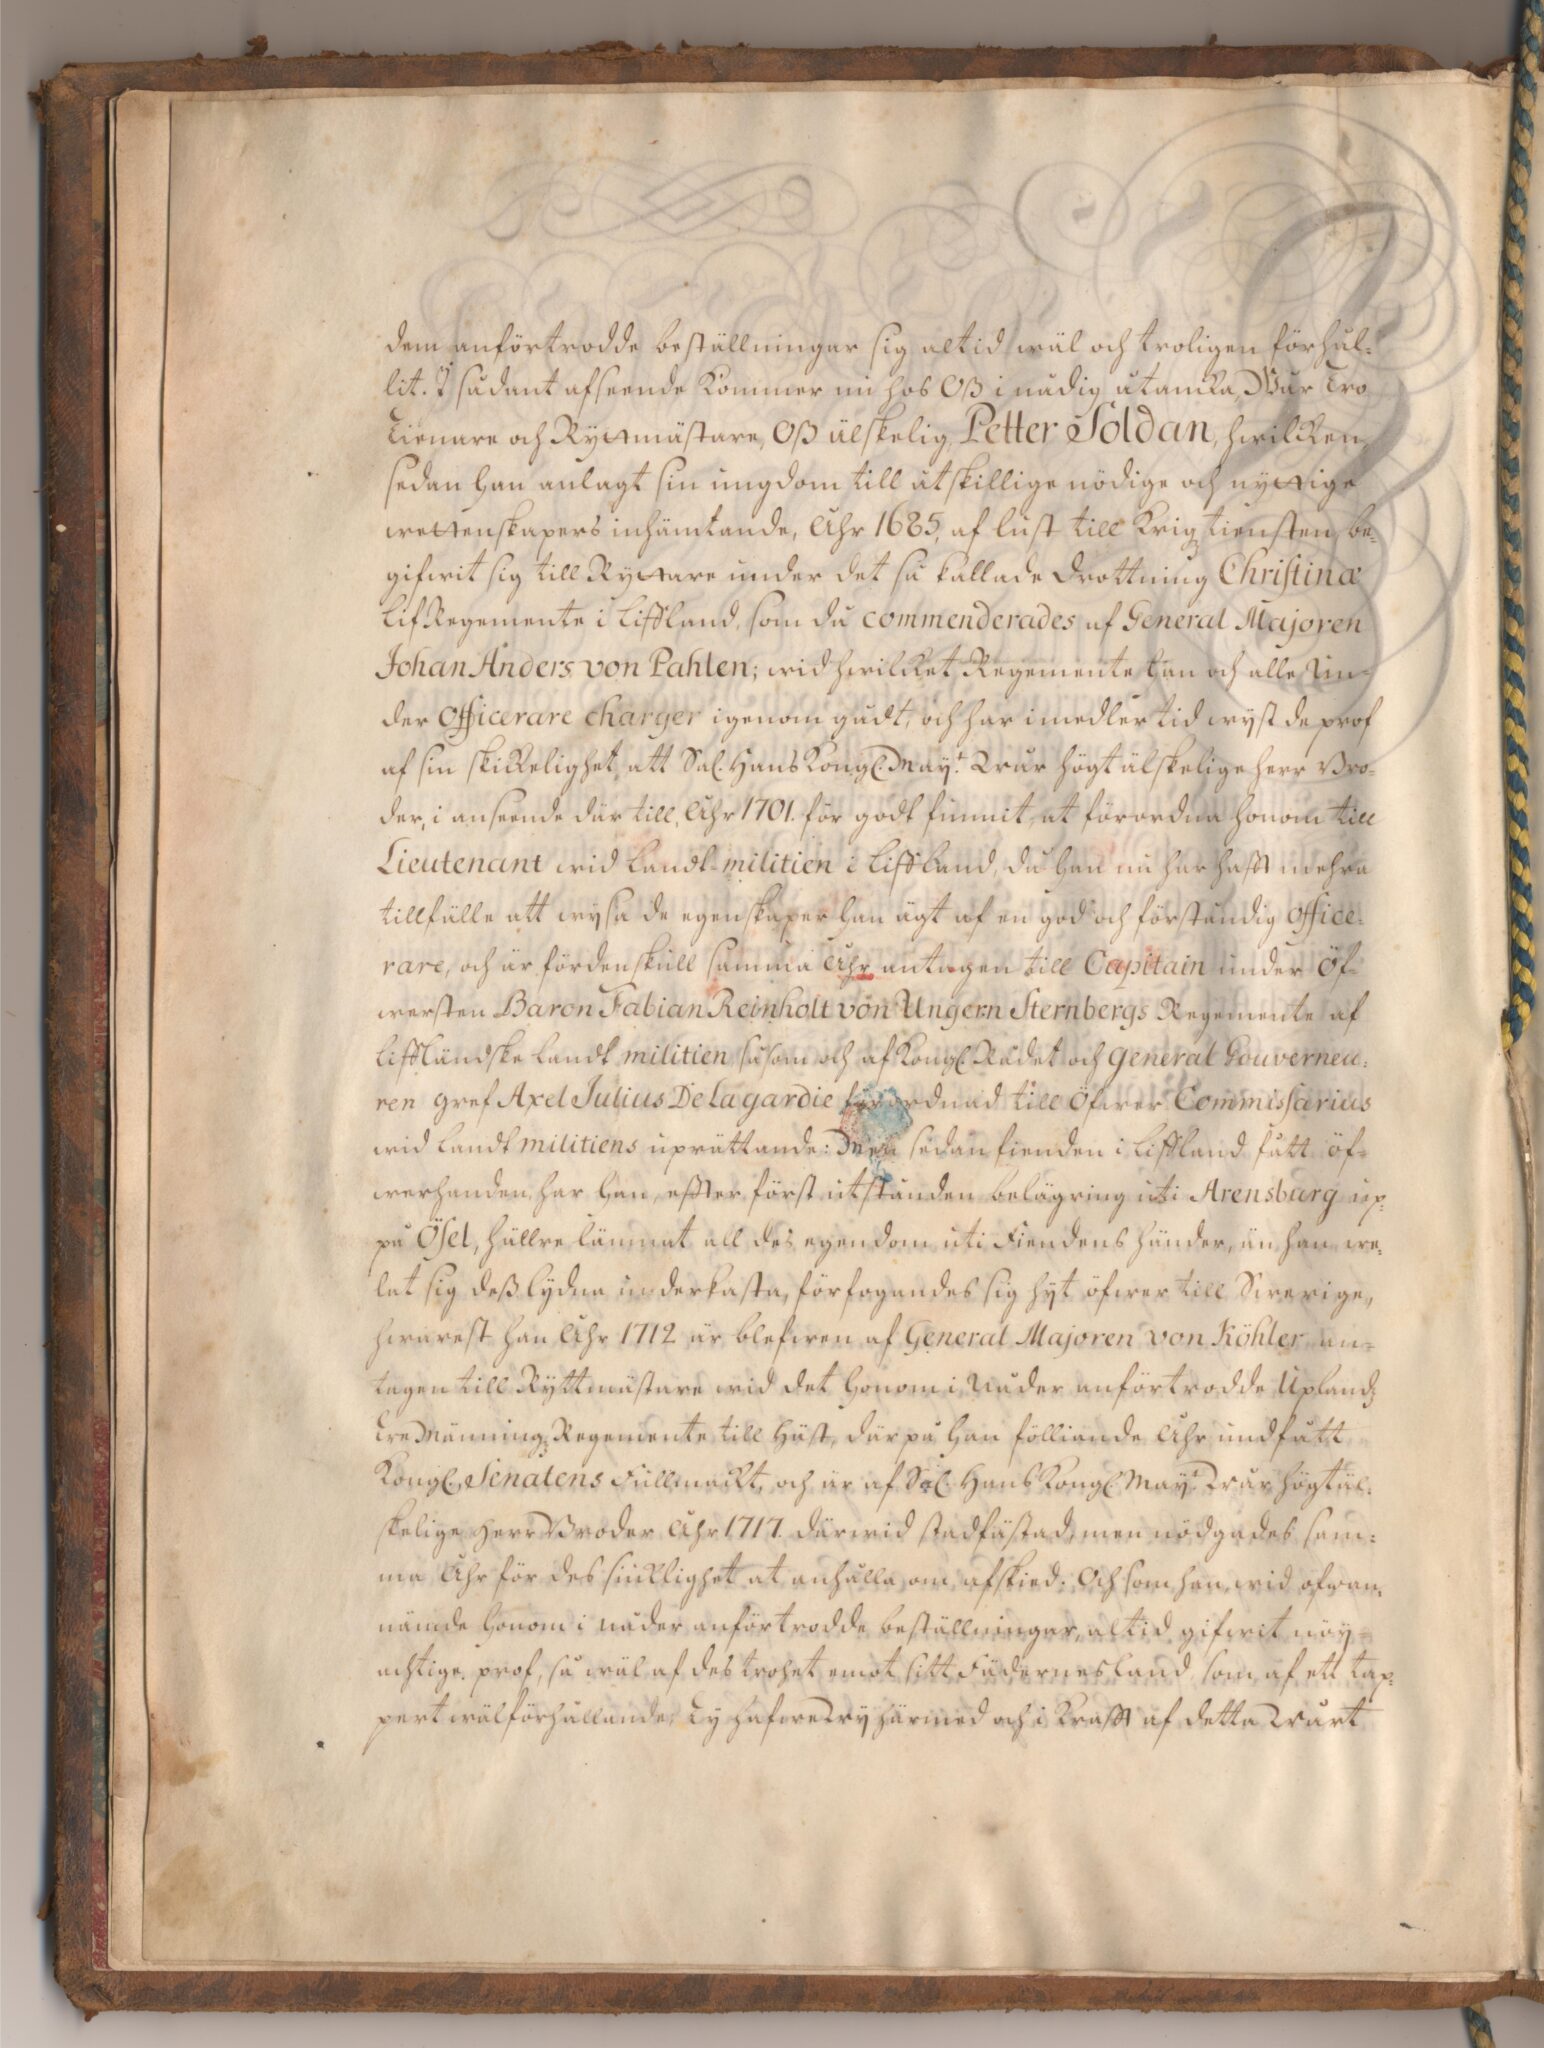 dem anförtrodde beställningar sig altid wäl och troligen förhål-
lit. I sådant afseende kommer nu hos Oß i nådig åtancka, Wår Tro
Tienare och Ryttmästare, Oß älskelig, Petter Soldan, hwilcken,
sedan han anlagt sin ungdom till åtskillige nödige och nyttige
wettenskapers inhämtande, Åhr 1685, af lust till Krigztiensten, be-
gifwit sig till Ryttare under det så kallade Drottning Christinæ
LifRegemente i Liffland, som då commenderades af General Majoren
Johan Anders von Pahlen; wid hwilcket Regemente han och alle Un-
der Officerare charger igenom gådt, och har imedlertid wyst de prof
af sin skickelighet, att Sal. Hans Kongl. Maÿ.t Wår högtälskelige herr Bro-
der, i anseende där till, Åhr 1701. för godt funnit, at förordna honom till
Lieutenant wid Landt-militien i Liffland, då han nu har hafft mehra
tillfälle att wysa de egenskaper han ägt af en god och förståndig Office-
rare, och är fördenskull samma Åhr antagen till Capitain under Öf-
wersten Baron Fabian Reinholt von Ungern Sternbergs Regemente af
Liffländske Landt militien, såsom och af Kongl. Rådet och General Gouverneu-
ren Gref Axel Julius De la gardie förordnad till Öfwer Commissarius
wid Landt militiens uprättande: Men sedan fienden i Liffland fått öf-
werhanden, har han, effter först utstånden belägring uti Arensburg up-
på Ösel, hällre lämnat all des egendom uti Fiendens händer, än han we-
lat sig deß lydna underkasta, förfogandes sig hyt öfwer till Swerige,
hwarest han Åhr 1712 är blefwen af General Majoren von Köhler an-
tagen till Ryttmästare wid det honom i Nåder anförtrodde Uplandz
TreMänningz Regemente till Häst, därpå han följande Åhr undfått
Kongl. Senatens Fullmackt, och är af Sal. Hans Kongl. Maÿ.t Wår högtäl-
skelige herr Broder Åhr 1717. därwid stadfästad, men nödgades sam-
ma Åhr för des siuklighet at anhålla om afskied. Och som han, wid ofwan-
nämde honom i nåder anförtrodde beställningar, altid gifwit nöy-
achtige prof, så wäl af des trohet emot sitt Fädernesland, som af ett tap-
pert wälförhållande; Ty hafwe Wy härmed och i Krafft af detta Wårt